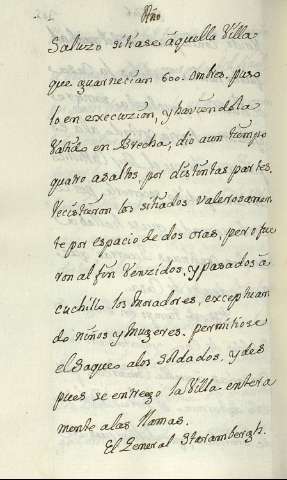 Año
Saluzo sitiase âquella Villa
que guarnecian 600. ombres. puso
lo en execuzion, y haviendola
vatido en brecha, dio aun tiempo
quatro asaltos, por distintas partes.
recistieron los sitiados valerosamen
te por espacio de dos oras, pero fue
ron al fin venzidos, y pasados â
cuchillo los moradores, exceptuan
do niños y Muzeres. permitiose
el saqueo alos soldados, y des
pues se entrego la Villa entera
mente alas llamas.
El General Starambergh.